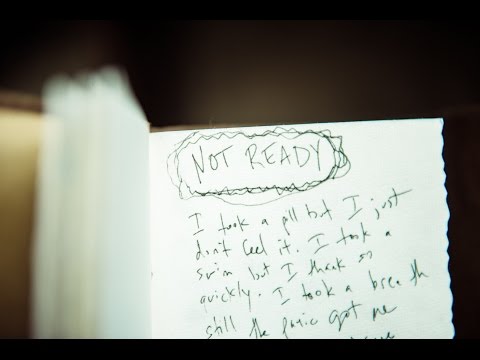 NOT READY
I took a pill but I just
don't feel it. I took a
swim but I thank so
quickly. I took a breath
still the panic got me